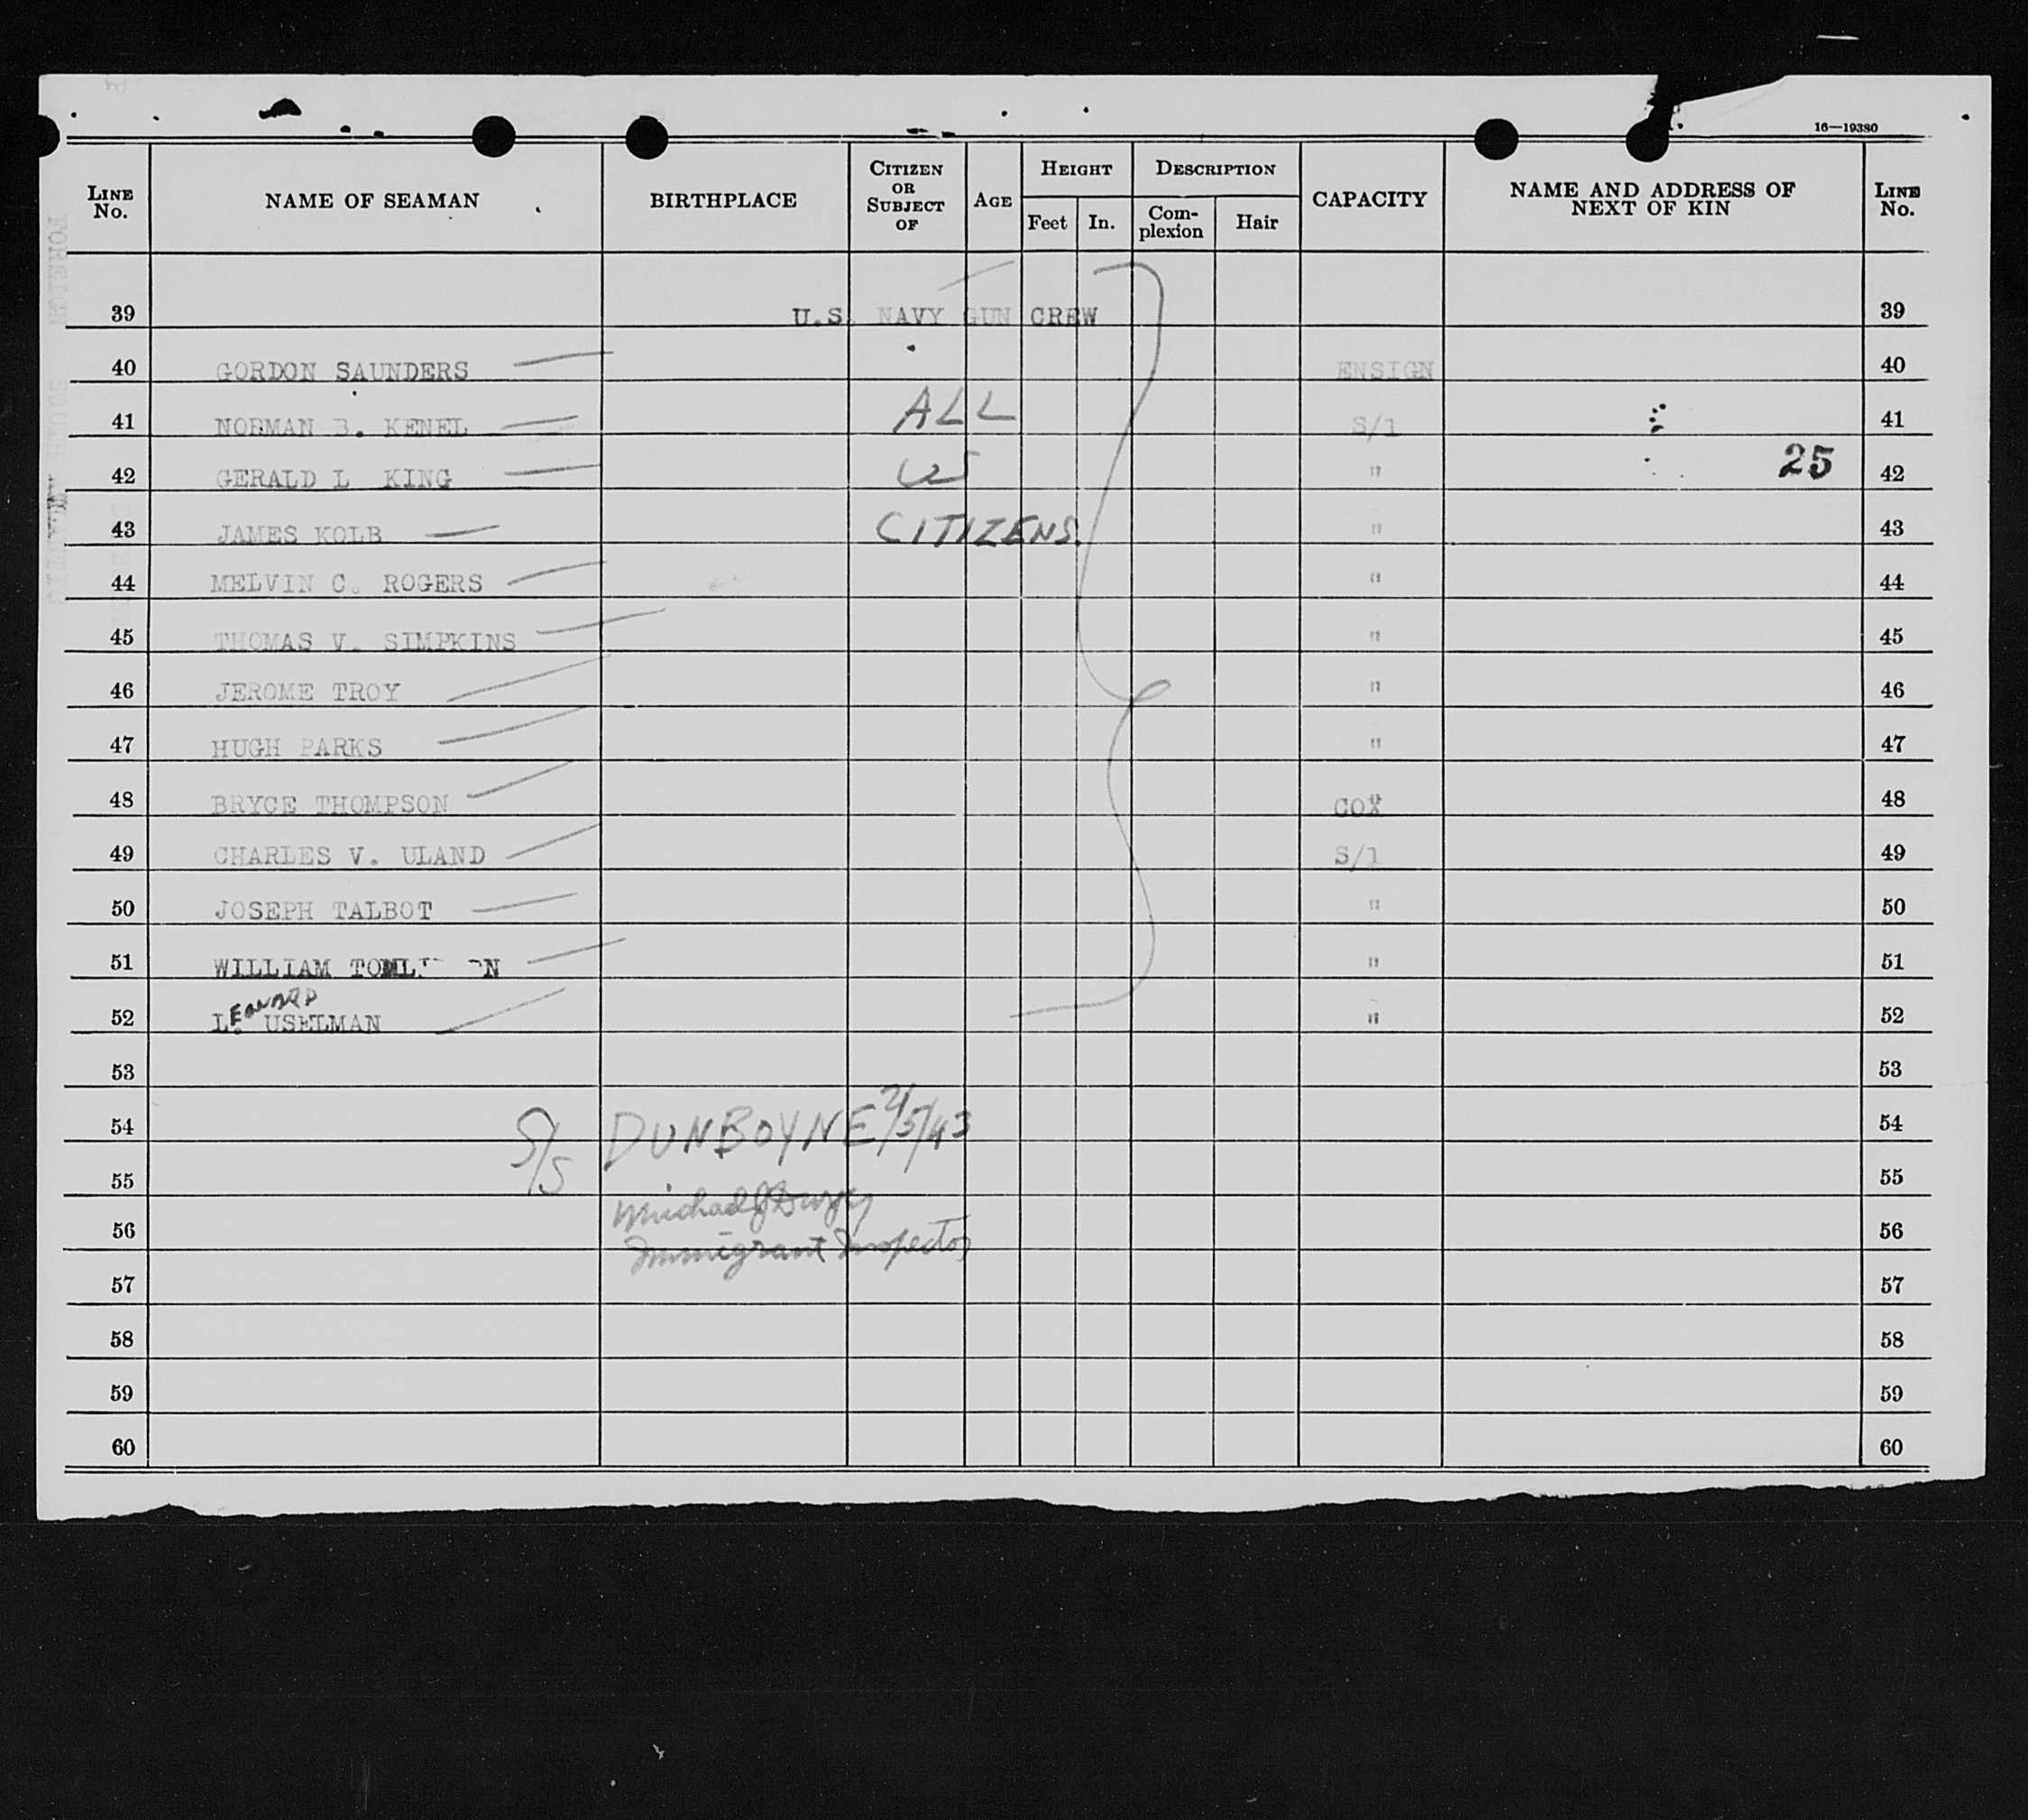 16—19380
LINE No. NAME OF SEAMAN BIRTHPLACE CITIZEN OR SUBJECT OF AGE HEIGHT Feet In. DESCRIPTION Complexion Hair CAPACITY NAME AND ADDRESS OF NEXT OF KIN LINE No.
39 U.S. NAVY GUN CREW 39
40 GORDON SAUNDERS ENSIGN 40
41 NORMAN B. KENEL ALL S/1 41
42 GERALD L KING US " 25 42
43 JAMES KOLB CITIZENS. " 43
44 MELVIN C. ROGERS " 44
45 THOMAS V. SIMPKINS " 45
46 JEROME TROY " 46
47 HUGH PARKS " 47
48 BRYCE THOMPSON COX 48
49 CHARLES V. ULAND S/1 49
50 JOSEPH TALBOT " 50
51 WILLIAM " 51
52 LEONARD USELMAN " 52
53 53
54 S/S DUNBOYNE 2/5/43 54
55 55
56 Michael J 56
Immigrant Inspector
57 57
58 58
59 59
60 60